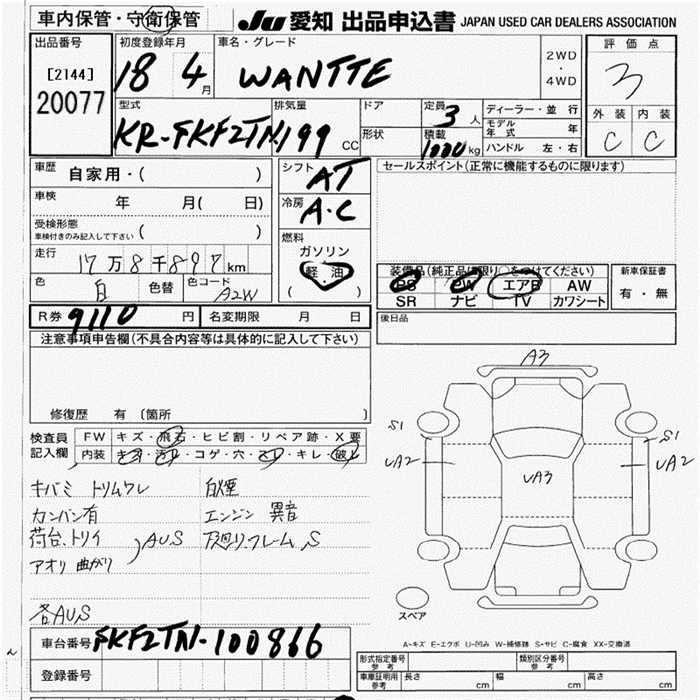 車内保管・守衛保管
JU 愛知 出品申込書 JAPAN USED CAR DEALERS ASSOCIATION
出品番号
[2144]
20077
初度登録年月
18 4月
車名・グレード
WANTTE
2WD
・
4WD
評価点
3
外装 内装
C C
型式
KR-FKF2TN
排気量
199 CC
ドア
形状
定員
3人
積載
1000kg
ディーラー・並行
モデル年式 年
ハンドル 左・右
車歴
自家用・( )
車検
年 月( 日)
受検形態
車検付きのみ記入して下さい ( )
走行
17万8千897km
色
白
色替
色コード
A2W
シフト
AT
冷房
A・C
燃料
ガソリン
軽・油
( )
セールスポイント(正常に機能するものに限ります)
装備品(純正品に限り○をつけてください)
PS PW エアB AW
SR ナビ TV カワシート
新車保証書
有・無
R券 9110 円
名変期限 月 日
後日品
注意事項申告欄(不具合内容等は具体的に記入して下さい)
修復歴 有 〔箇所 〕
検査員
記入欄
FW キズ・飛石・ヒビ割・リペア跡・X要
内装 キズ・汚れ・コゲ・穴・スレ・キレ・破れ
キバミ トリムワレ
カンバン有
荷台、トリイ
アオリ 曲がり
AUS
各AUS
白煙
エンジン 異音
下廻り、フレーム、S
A3
S1
UA2
UA3
S1
UA2
スペア
A-キズ E-エクボ U-凹み W-補修跡 S-サビ C-腐食 XX-交換済
車台番号 FKF2TN-100866
登録番号
形式指定番号
参考
類別区分番号
参考
車庫証明用
参考
長さ cm
幅 cm
高さ cm